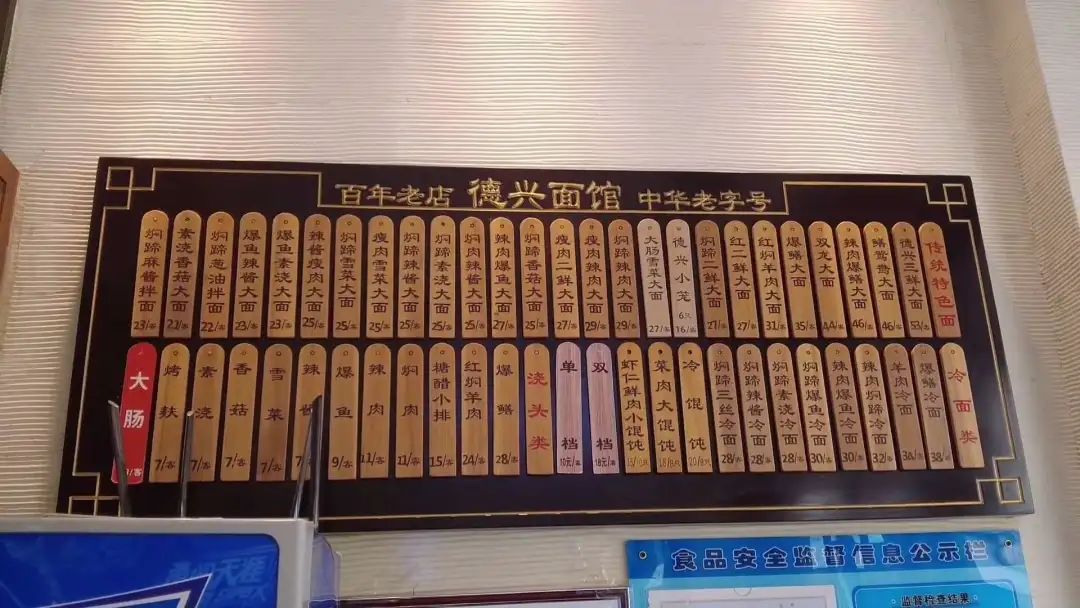 百年老店 德兴面馆 中华老字号
传统特色面
德兴三鲜大面 53/客
鳝鸳鸯大面 46/客
辣肉爆鳝大面 46/客
双龙大面 44/客
爆鳝大面 35/客
红焖羊肉大面 31/客
红二鲜大面 27/客
焖蹄二鲜大面 27/客
德兴小笼 6只 16/客
大肠雪菜大面 27/客
焖肉辣肉大面 29/客
瘦肉辣肉大面 29/客
瘦肉二鲜大面 27/客
焖蹄香菇大面 25/客
辣肉爆鱼大面 27/客
焖肉辣酱大面 25/客
焖蹄素浇大面 25/客
焖蹄辣酱大面 25/客
瘦肉雪菜大面 25/客
焖蹄雪菜大面 25/客
辣酱瘦肉大面 25/客
爆鱼素浇大面 23/客
爆鱼辣酱大面 23/客
焖蹄葱油拌面 22/客
素浇香菇大面 21/客
焖蹄麻酱拌面 23/客
冷面类
爆鳝冷面 38/客
羊肉冷面
辣肉焖蹄冷面 32/客
辣肉爆鱼冷面 30/客
焖蹄爆鱼冷面 30/客
焖蹄素浇冷面 28/客
焖蹄辣酱冷面 28/客
焖蹄三丝冷面 28/客
冷馄饨
菜肉大馄饨
虾仁鲜肉小馄饨
双档 18元/客
单档 10元/客
浇头类
爆鳝 28/客
红焖羊肉 24/客
糖醋小排 15/客
焖肉 11/客
辣肉 11/客
爆鱼 9/客
辣
雪菜 7/客
香菇 7/客
素浇 7/客
烤麸 7/客
大肠
食品安全监督信息公示栏
监督检查结果